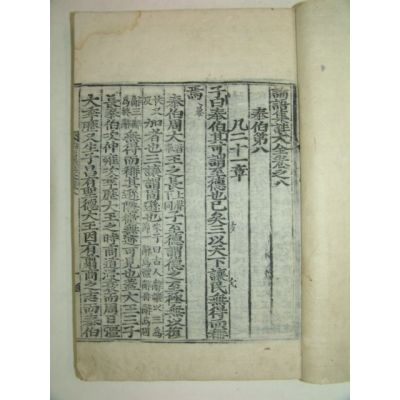 論語集註大全卷之八
泰伯第八
凡二十一章
子曰泰伯其可謂至德也已矣三以天下讓民無得而稱
焉
泰伯周大王之長子至德謂德之至極無以復
加者也三讓謂固遜也
無得而稱其遜隱微無迹可見也蓋大王三子
長泰伯次仲雍次季歷大王之時商道寖衰而周日彊
大季歷又生子昌有聖德大王因有翦商之志而泰伯